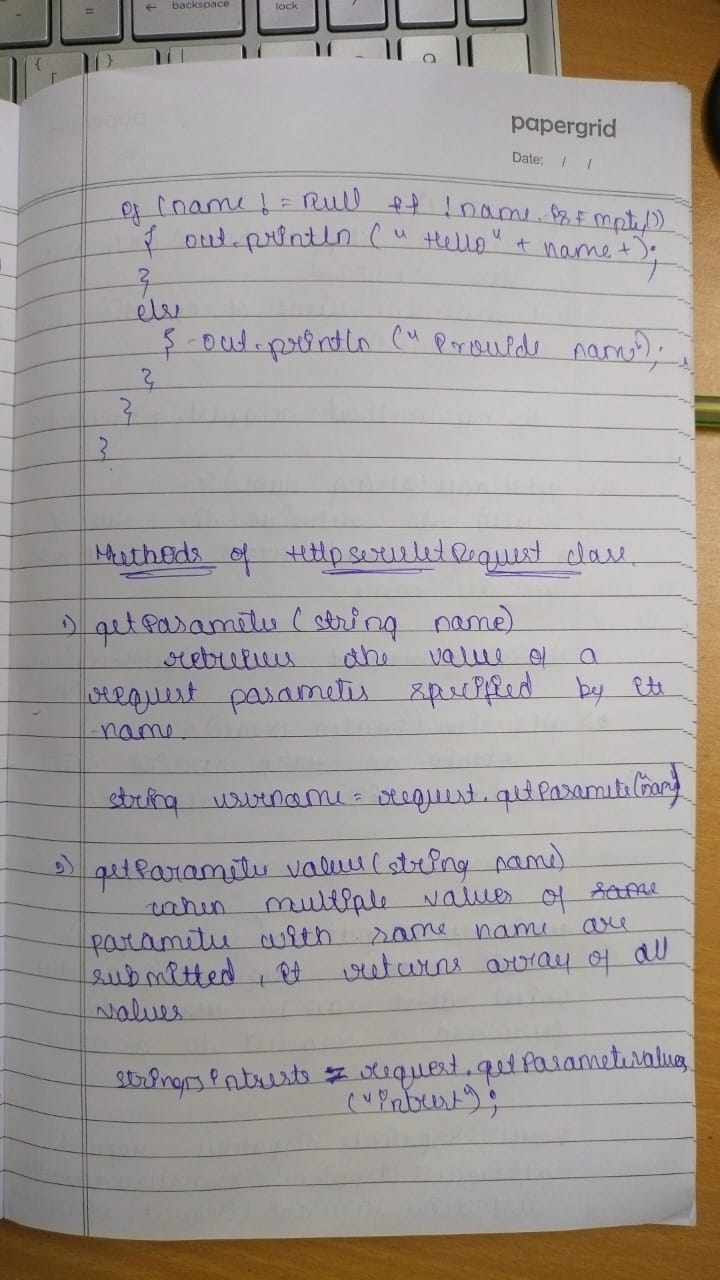 backspace
lock
papergrid
Date: / /
if (name != null && !name.isEmpty())
{ out.println ("Hello" + name +);
}
else
{ out.println ("Provide name");
}
}
}
Methods of HttpservletRequest class.
1) getParameter (string name)
retrieves the value of a
request parameter specified by its
name.
string username = request.getParameter("name")
2) getParameter values (string name)
when multiple values of same
parameter with same name are
submitted, it returns array of all
values
string[] intrests = request.getParametervalues
("intrest");